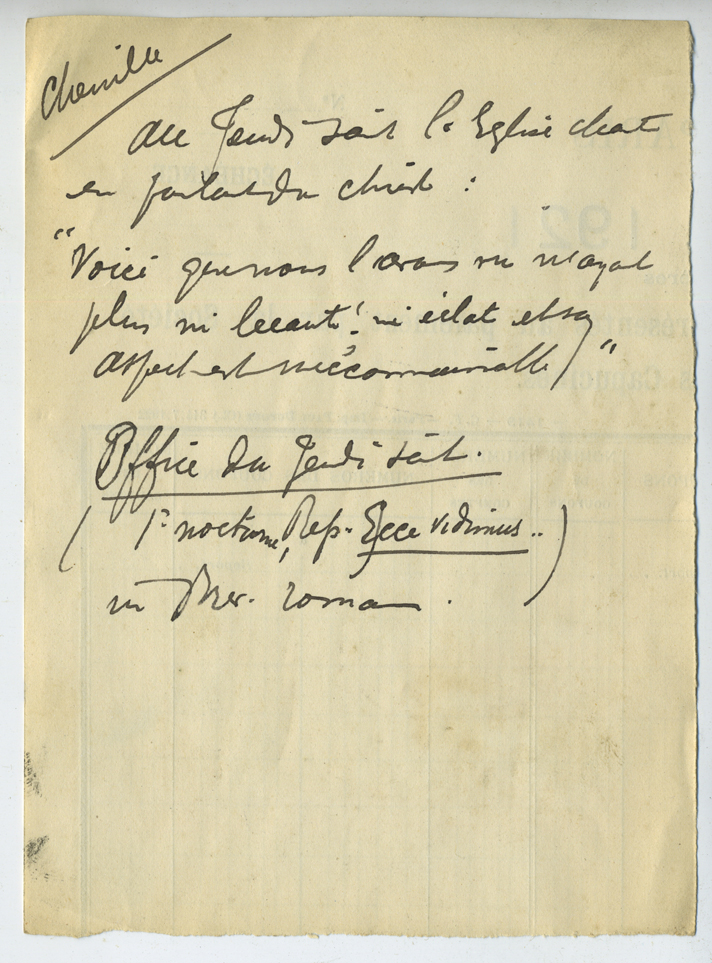 Chenille
Au Jeudi saint l'Eglise chante
en parlant du Christ :
"Voici que nous l'avons vu n'ayant
plus ni beauté ni éclat et son
aspect est méconnaissable"
Office du Jeudi saint.
(1er nocturne, Rép. Ecce vidimus..)
in Brev. roman.
1921